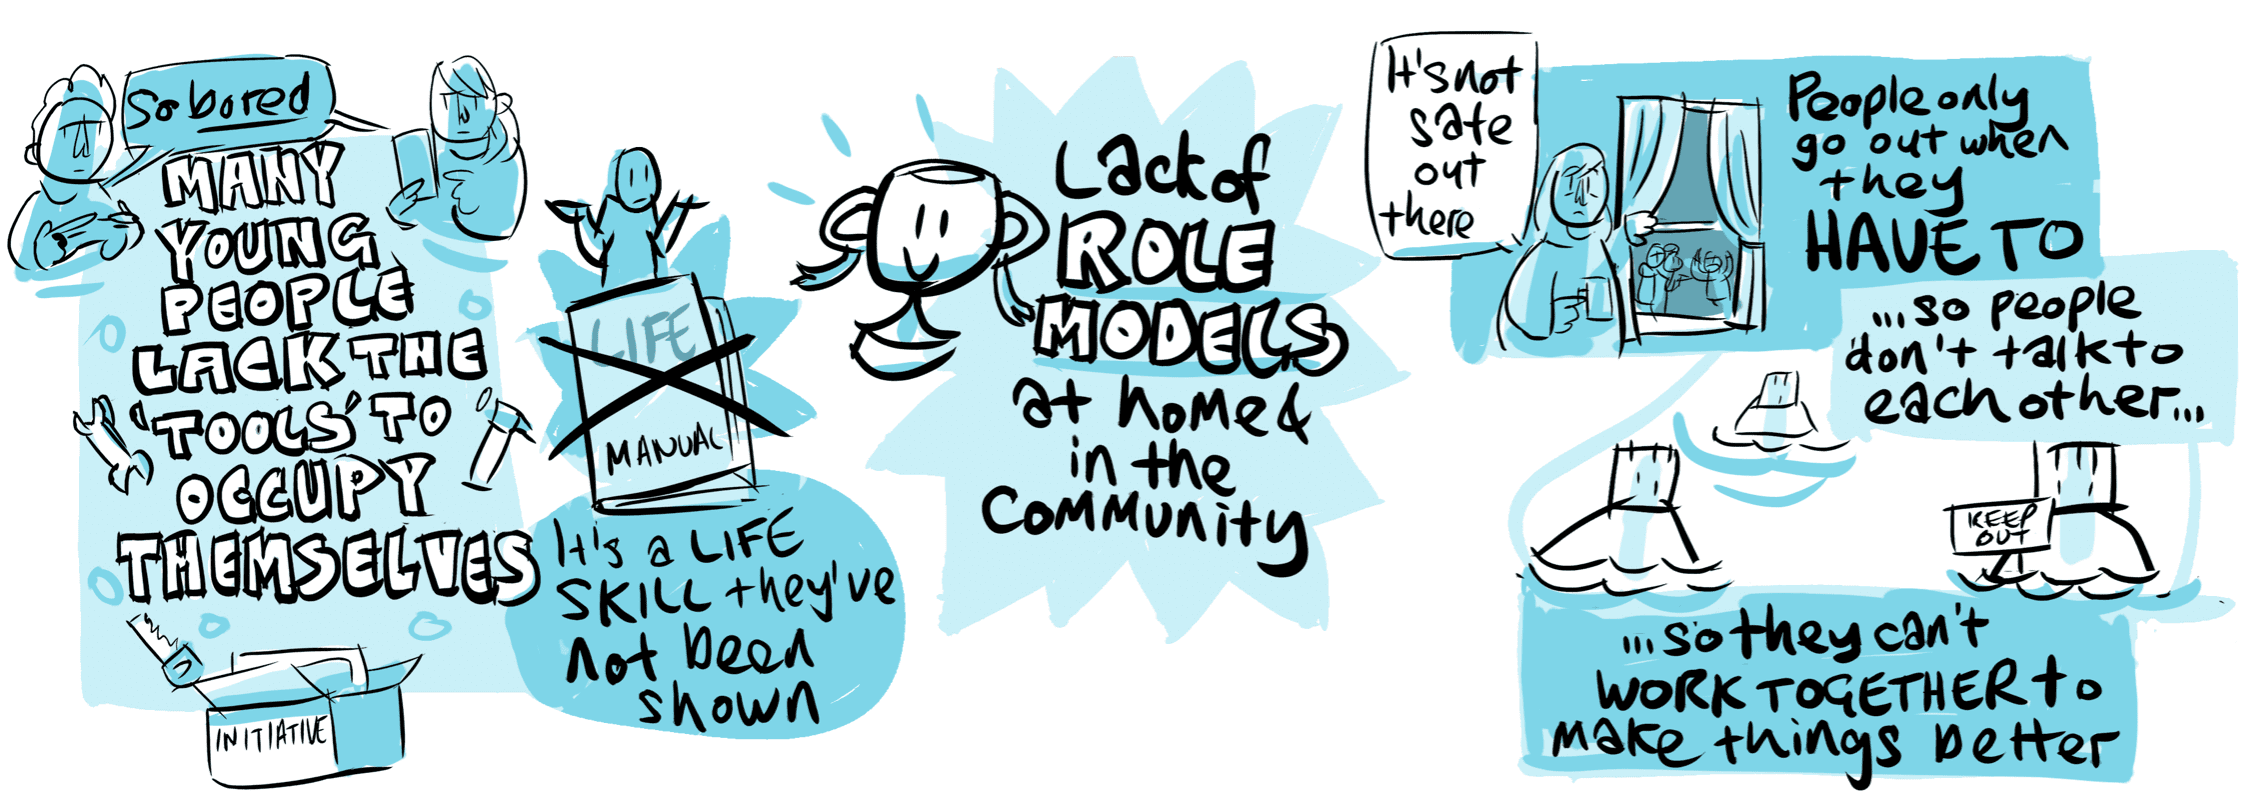 So bored
MANY
YOUNG
PEOPLE
LACK THE
'TOOLS' TO
OCCUPY
THEMSELVES
INITIATIVE
LIFE
MANUAL
It's a LIFE
SKILL they've
not been
shown
Lack of
ROLE
MODELS
at home &
in the
Community
It's not
safe
out
there
People only
go out when
they
HAVE TO
...so people
don't talk to
each other...
KEEP
OUT
...so they can't
WORK TOGETHER to
make things better